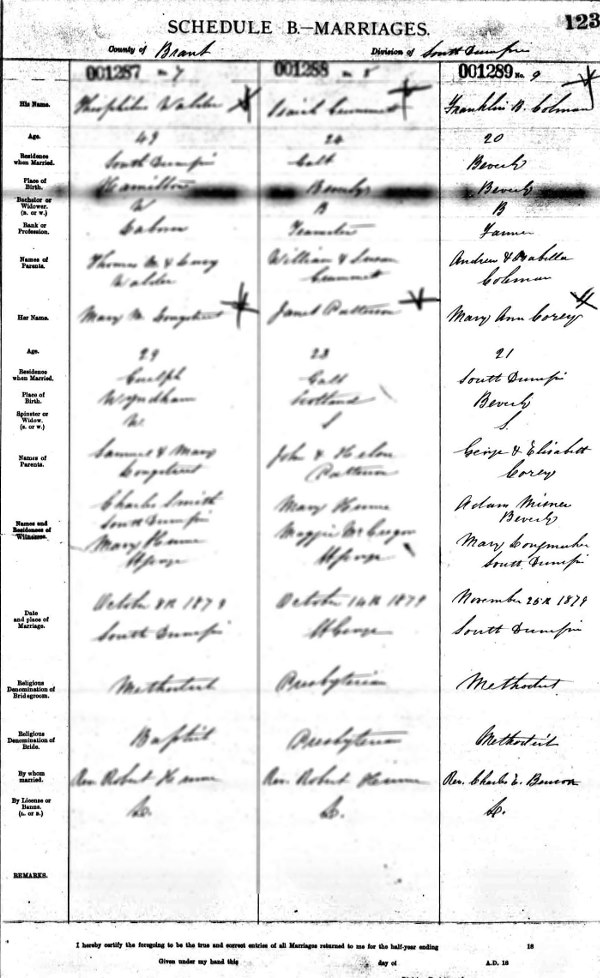 123
SCHEDULE B.—MARRIAGES.
County of Brant Division of South Dumfries
001287 No. 7 001288 No. 8 001289 No. 9
His Name. Theophilus Walder Isaiah Franklin B. Colman
Age. 43 20
Residence when Married. South Dumfries Galt Beverly
Place of Birth. Hamilton Beverly Beverly
Bachelor or Widower. (B. or W.) W B B
Rank or Profession. Laborer Teamster Farmer
Names of Parents. Thomas & Lucy Walder William & Susan Andrew & Isabella Coleman
Her Name. Mary M. Janet Patterson Mary Ann Corey
Age. 29 23 21
Residence when Married. Guelph Galt South Dumfries
Place of Birth. Wyndham Scotland Beverly
Spinster or Widow. (S. or W.) W. S S.
Names of Parents. Samuel & Mary John & Helen Patterson George & Elizabeth Corey
Names and Residences of Witnesses. Charles Smith South Dumfries Mary Hume St George
Mary Hume Maggie McGregor St George
Adam Misner Beverly Mary South Dumfries
Date and place of Marriage. October 8th 1879 South Dumfries October 14th 1879 St George November 25th 1879 South Dumfries
Religious Denomination of Bridegroom. Methodist Presbyterian Methodist
Religious Denomination of Bride. Baptist Presbyterian Methodist
By whom married. Rev. Robert Hume Rev. Robert Hume Rev. Charles E.
By License or Banns. (L. or B.) L. L. L.
REMARKS.
I hereby certify the foregoing to be the true and correct entries of all Marriages returned to me for the half-year ending 18
Given under my hand this day of A.D. 18